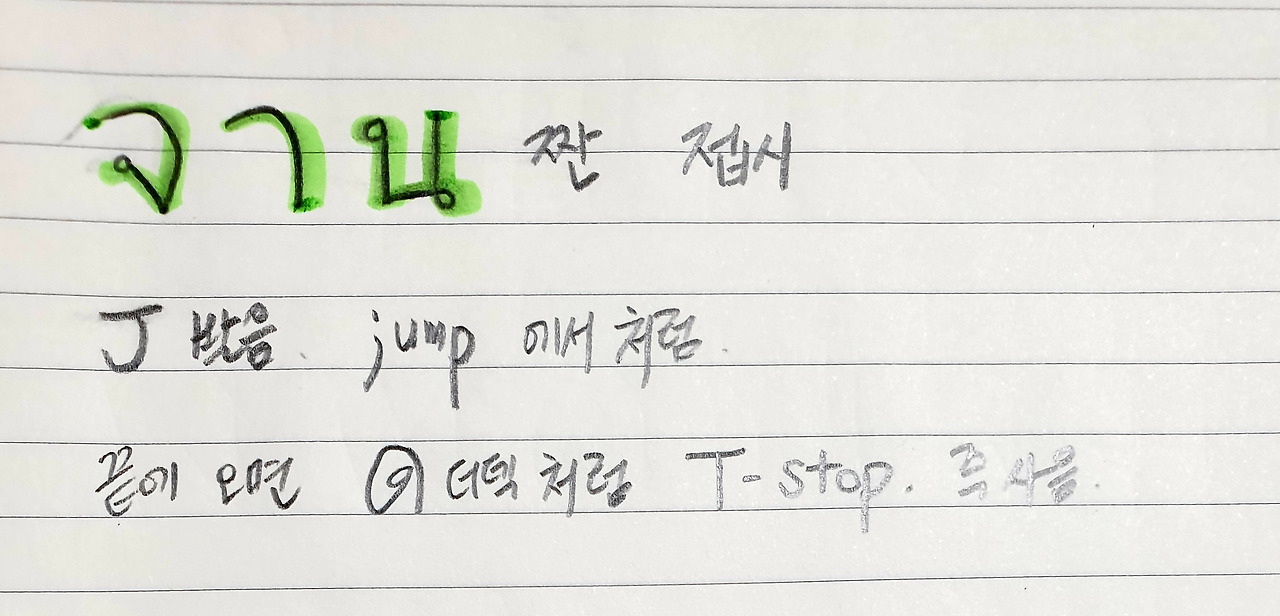 จาน 짠 접시
J 발음. jump 에서 처럼.
끝에 오면 ด 더덱 처럼 T-stop. 즉 사음.